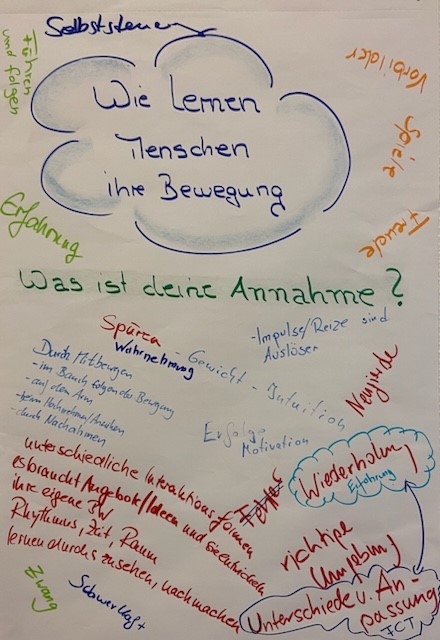 Selbststeuerung
Führen
und folgen
Vorbilder
Wie Lernen
Menschen
ihre Bewegung
Spiele
Freude
Erfahrung
Was ist deine Annahme?
Spüren
Wahrnehmung
- Gewicht - Intuition
- Impulse/Reize sind
Auslöser
Neugierde
Durch Mitbewegen
- im Bauch folgen der Bewegung
- auf dem Arm
- beim Hochnehmen/Anziehen
- durch Nachahmen
Erfolge
Motivation
unterschiedliche Interaktionsformen
es braucht Angebote/Ideen und sie entwickeln
ihre eigene BW
Rhythmus, Zeit, Raum
lernen durchs zusehen, nachmachen
Wiederholung
Erfahrung
richtige
Umgebung
Unterschiede u. An-
passung
Zwang
Schwerkraft